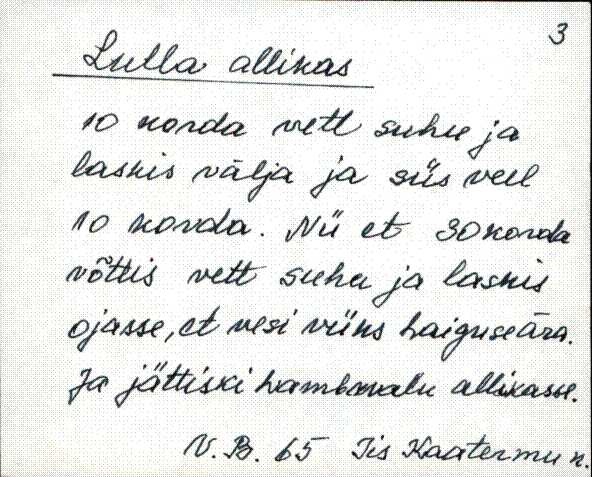 3
Lulla allikas
10 korda vett suhu ja
laskis välja ja siis veel
10 korda. Nii et 30 korda
võttis vett suhu ja laskis
ojasse, et vesi viiks haiguse ära.
Ja jättiski hambavalu allikasse.
V. B. 65 Iis Kaatermu k.